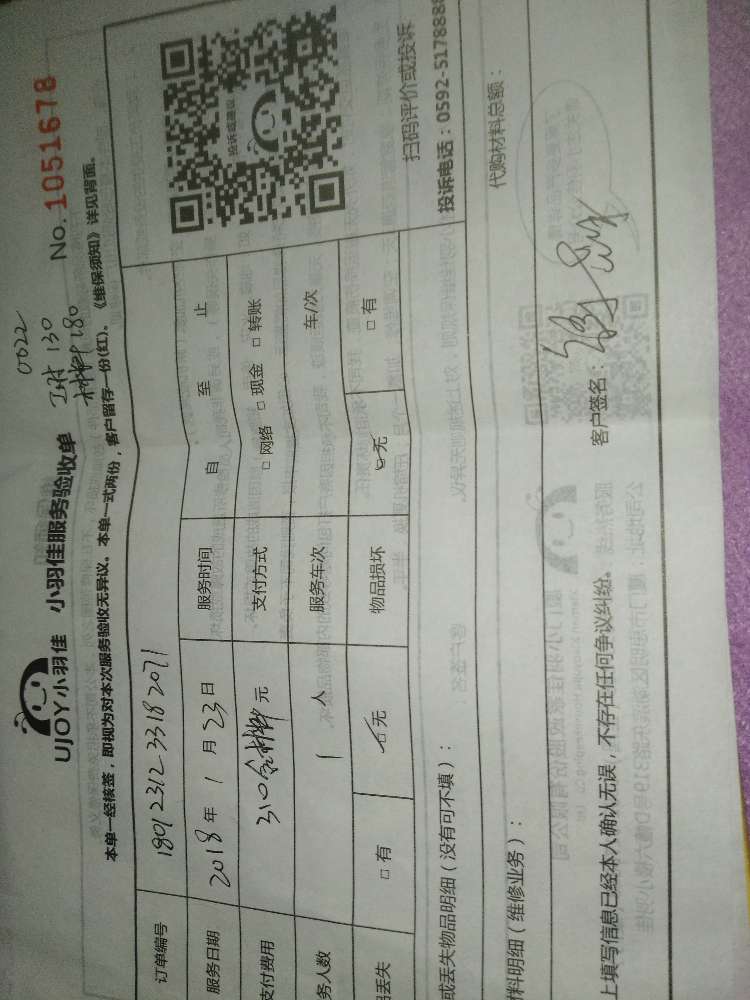 0022
工时 130
材料 180
UJOY小羽佳 小羽佳服务验收单 No. 1051678
本单一经核签，即视为对本次服务验收无异议。本单一式两份，客户留存一份(红)。《维保须知》详见背面。
订单编号 18012312 33182071
服务日期 2018 年 1 月 23 日 服务时间 自 至 止
支付费用 310含材料 元 支付方式 □ 网络 □ 现金 □ 转账
务人数 1 人 服务车次 车/次
品丢失 □ 有 □ 无 物品损坏 □ 无 □ 有
投诉或建议
扫码评价或投诉
投诉电话：0592-5178888
或丢失物品明细（没有可不填）：
料明细（维修业务）： 代购材料总额：
上填写信息已经本人确认无误，不存在任何争议纠纷。 客户签名：